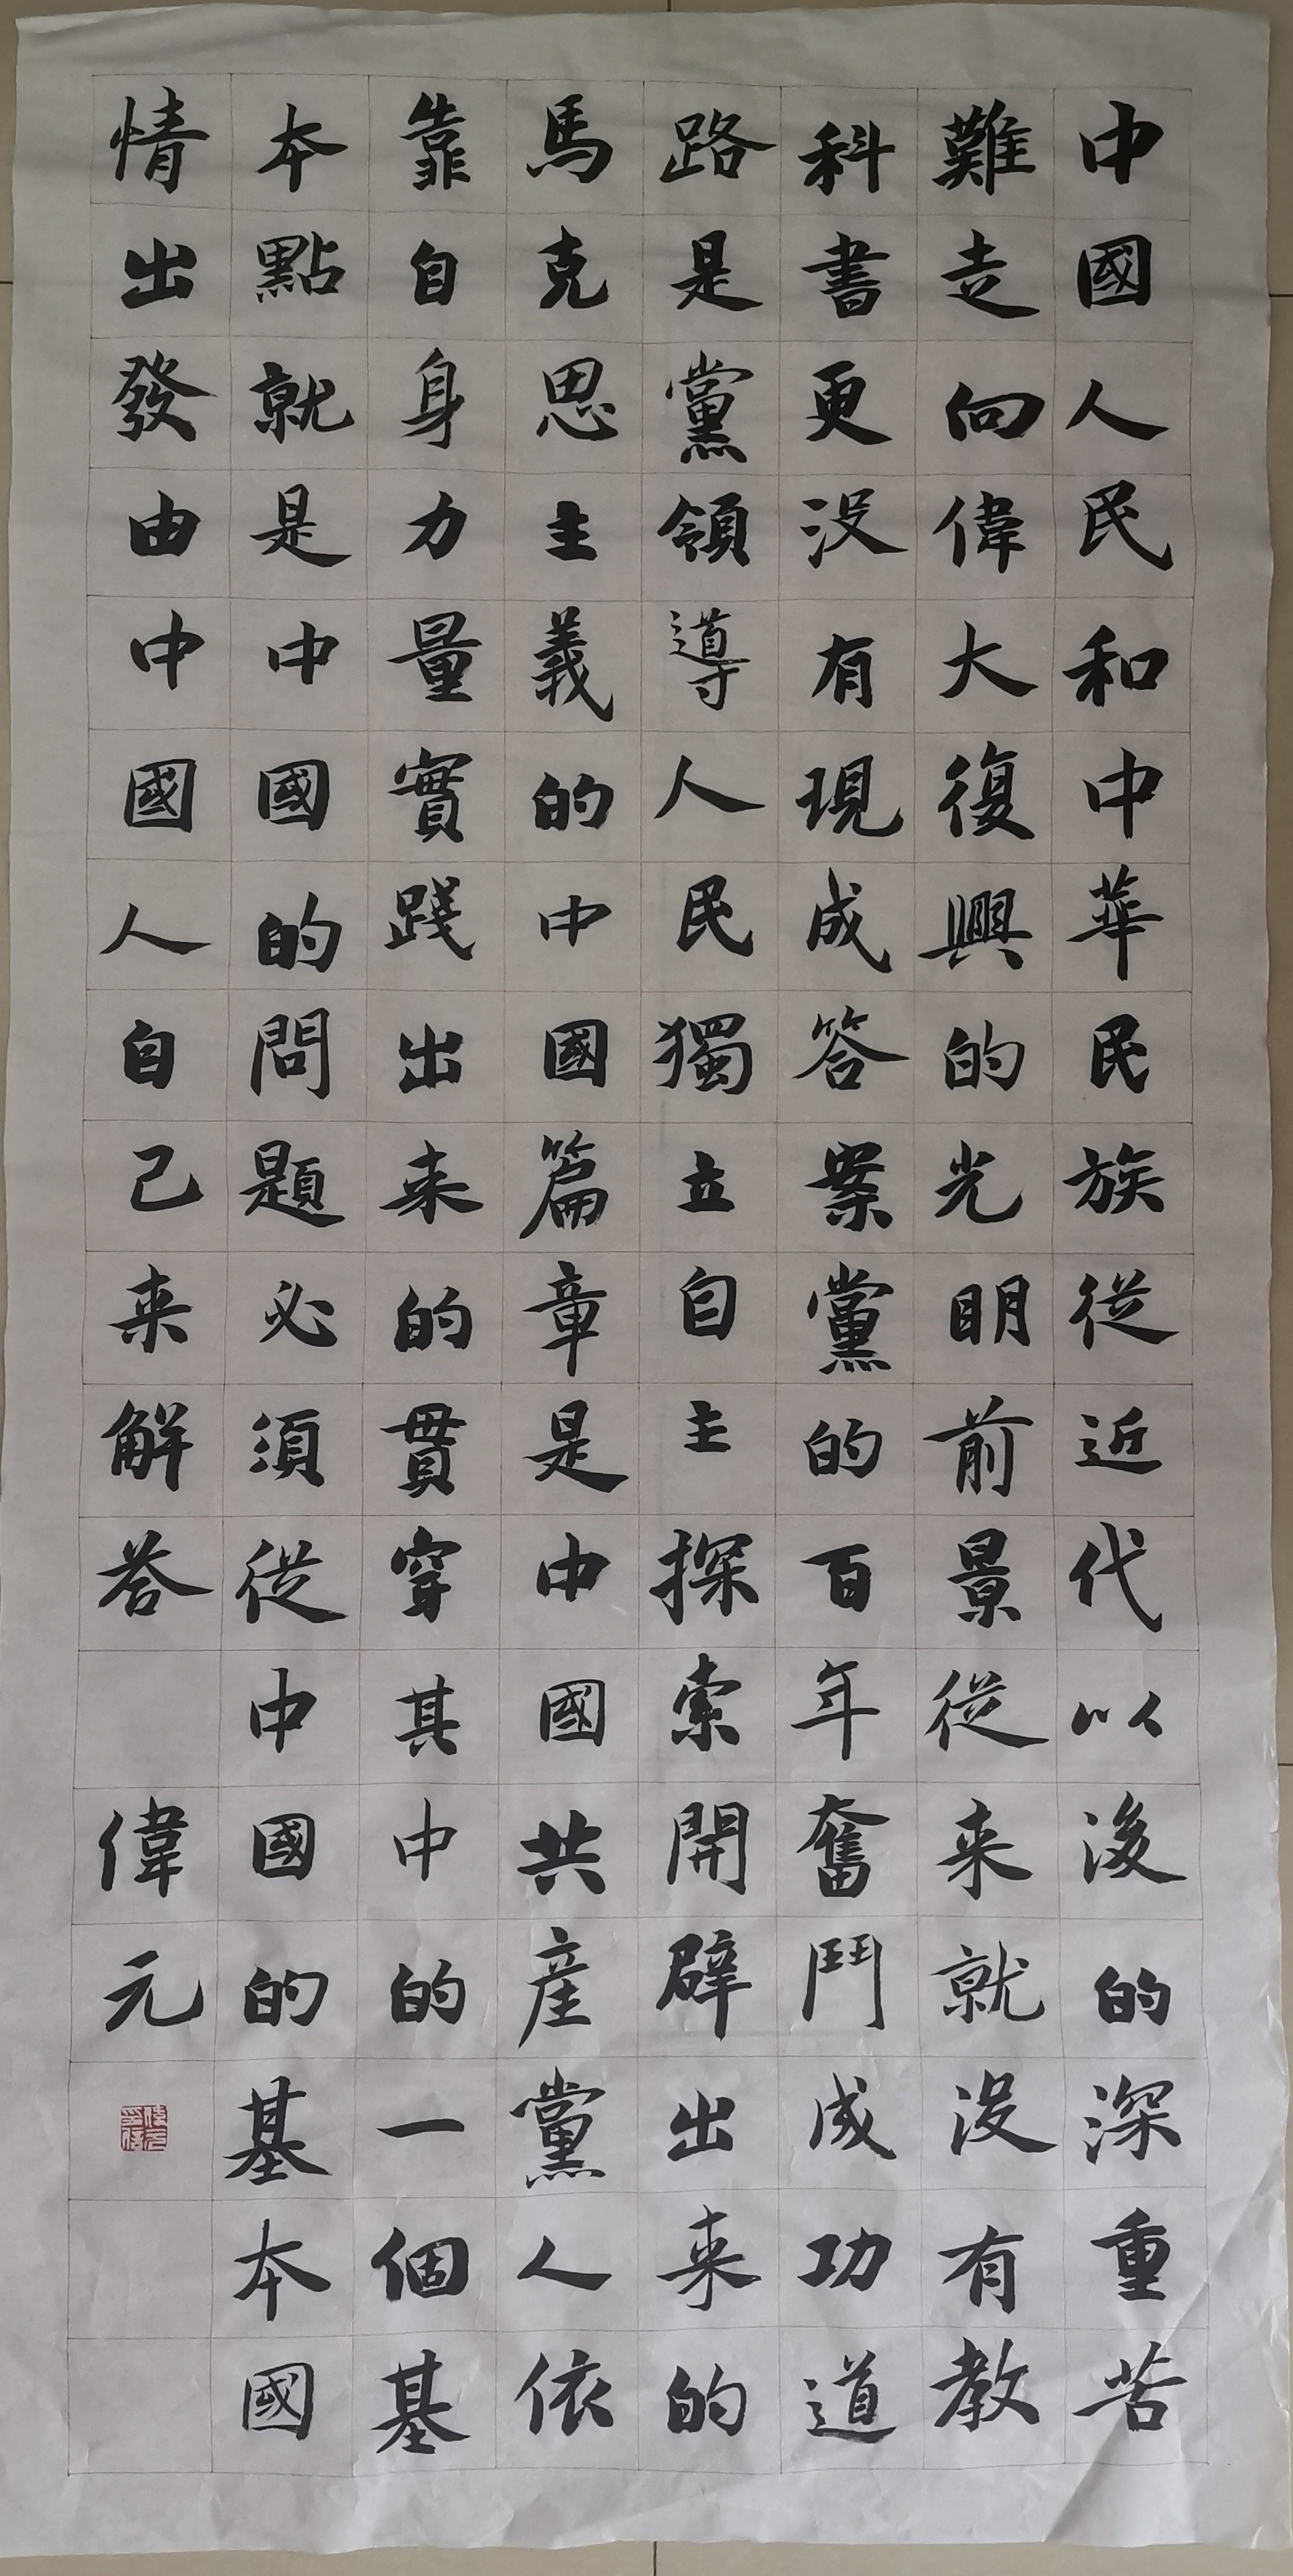 中國人民和中華民族從近代以後的深重苦
難走向偉大復興的光明前景從来就没有教
科書更没有現成答案黨的百年奮鬥成功道
路是黨領導人民獨立自主探索開辟出来的
馬克思主義的中國篇章是中國共産黨人依
靠自身力量實踐出来的貫穿其中的一個基
本點就是中國的問題必須從中國的基本國
情出發由中國人自己来解答
偉元